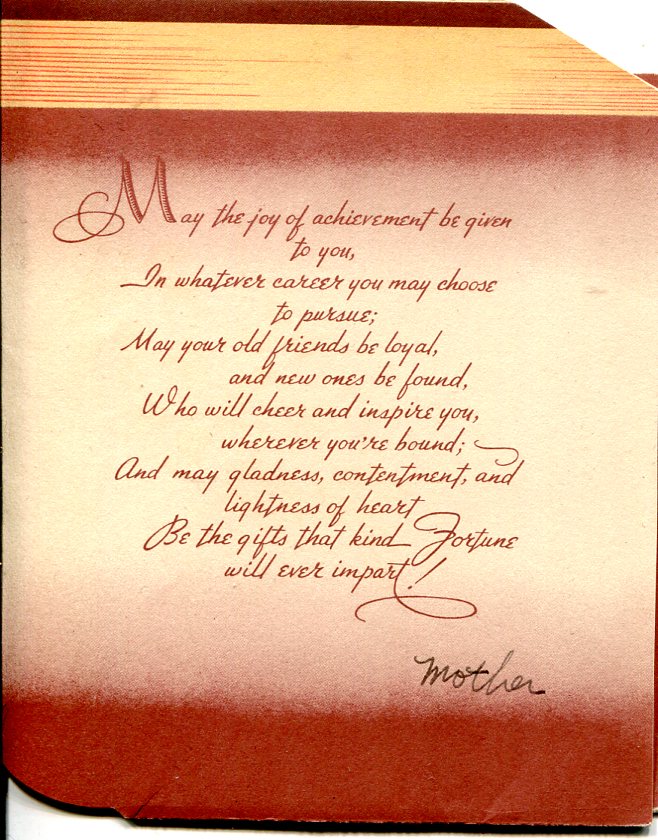 May the joy of achievement be given
to you,
In whatever career you may choose
to pursue;
May your old friends be loyal,
and new ones be found,
Who will cheer and inspire you,
wherever you're bound;
And may gladness, contentment, and
lightness of heart
Be the gifts that kind Fortune
will ever impart!
Mother